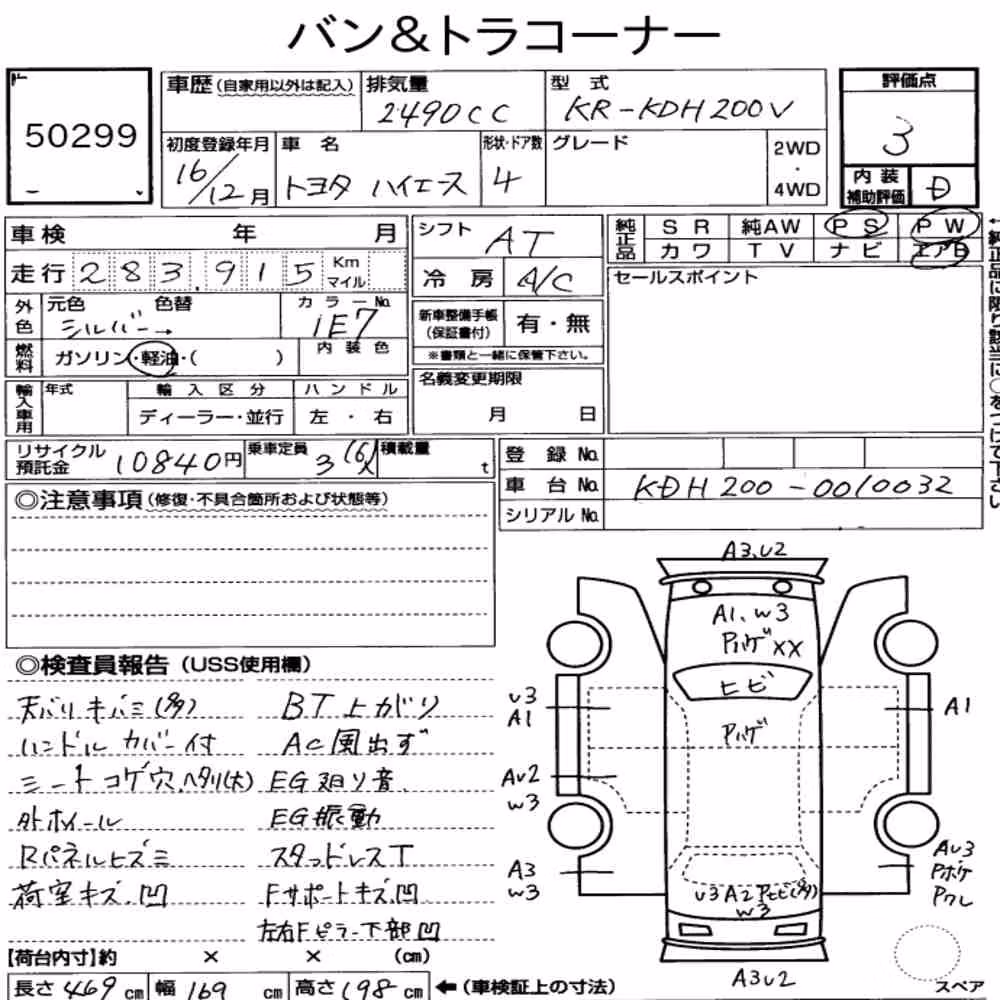 バン&トラコーナー
50299
車歴(自家用以外は記入)
排気量
2490CC
型式
KR-KDH200V
評価点
3
初度登録年月
16/12月
車名
トヨタ ハイエース
形状・ドア数
4
グレード
2WD
・
4WD
内装
補助評価
D
車検 年 月
走行 283,915 Km マイル
シフト
AT
冷房
A/C
純正品
SR 純AW PS PW
カワ TV ナビ エアB
←純正品に限り該当に○をつけて下さい
セールスポイント
外色
元色 色替
シルバー→
カラーNo.
1E7
燃料
ガソリン・軽油・( )
内装色
新車整備手帳
(保証書付)
有・無
※書類と一緒に保管下さい。
輸入車用
年式
輸入区分
ハンドル
ディーラー・並行
左・右
名義変更期限
月 日
リサイクル
預託金
10840円
乗車定員
3(6)人
積載量
t
登録No.
車台No. KDH200-0010032
シリアルNo.
◎注意事項(修復・不具合箇所および状態等)
◎検査員報告(USS使用欄)
天バリキバミ(多) BT上がり
ハンドルカバー付 AC風出ず
シートコゲ穴.ヘタリ(大) EG廻り音.
外ホイール EG振動
Rパネルヒズミ スタッドレスT
荷室キズ.凹 Fサポートキズ.凹
左右Fピラー下部凹
A3.U2
A1.W3
PハゲXX
ヒビ
Pハゲ
U3
A1
A1
AU2
W3
A3
W3
AU3
Pボケ
Pクレ
U3A2Pヒビ(多)
W3
A3U2
スペア
【荷台内寸】約 × × (cm)
長さ 469cm 幅 169cm 高さ 198cm ←(車検証上の寸法)